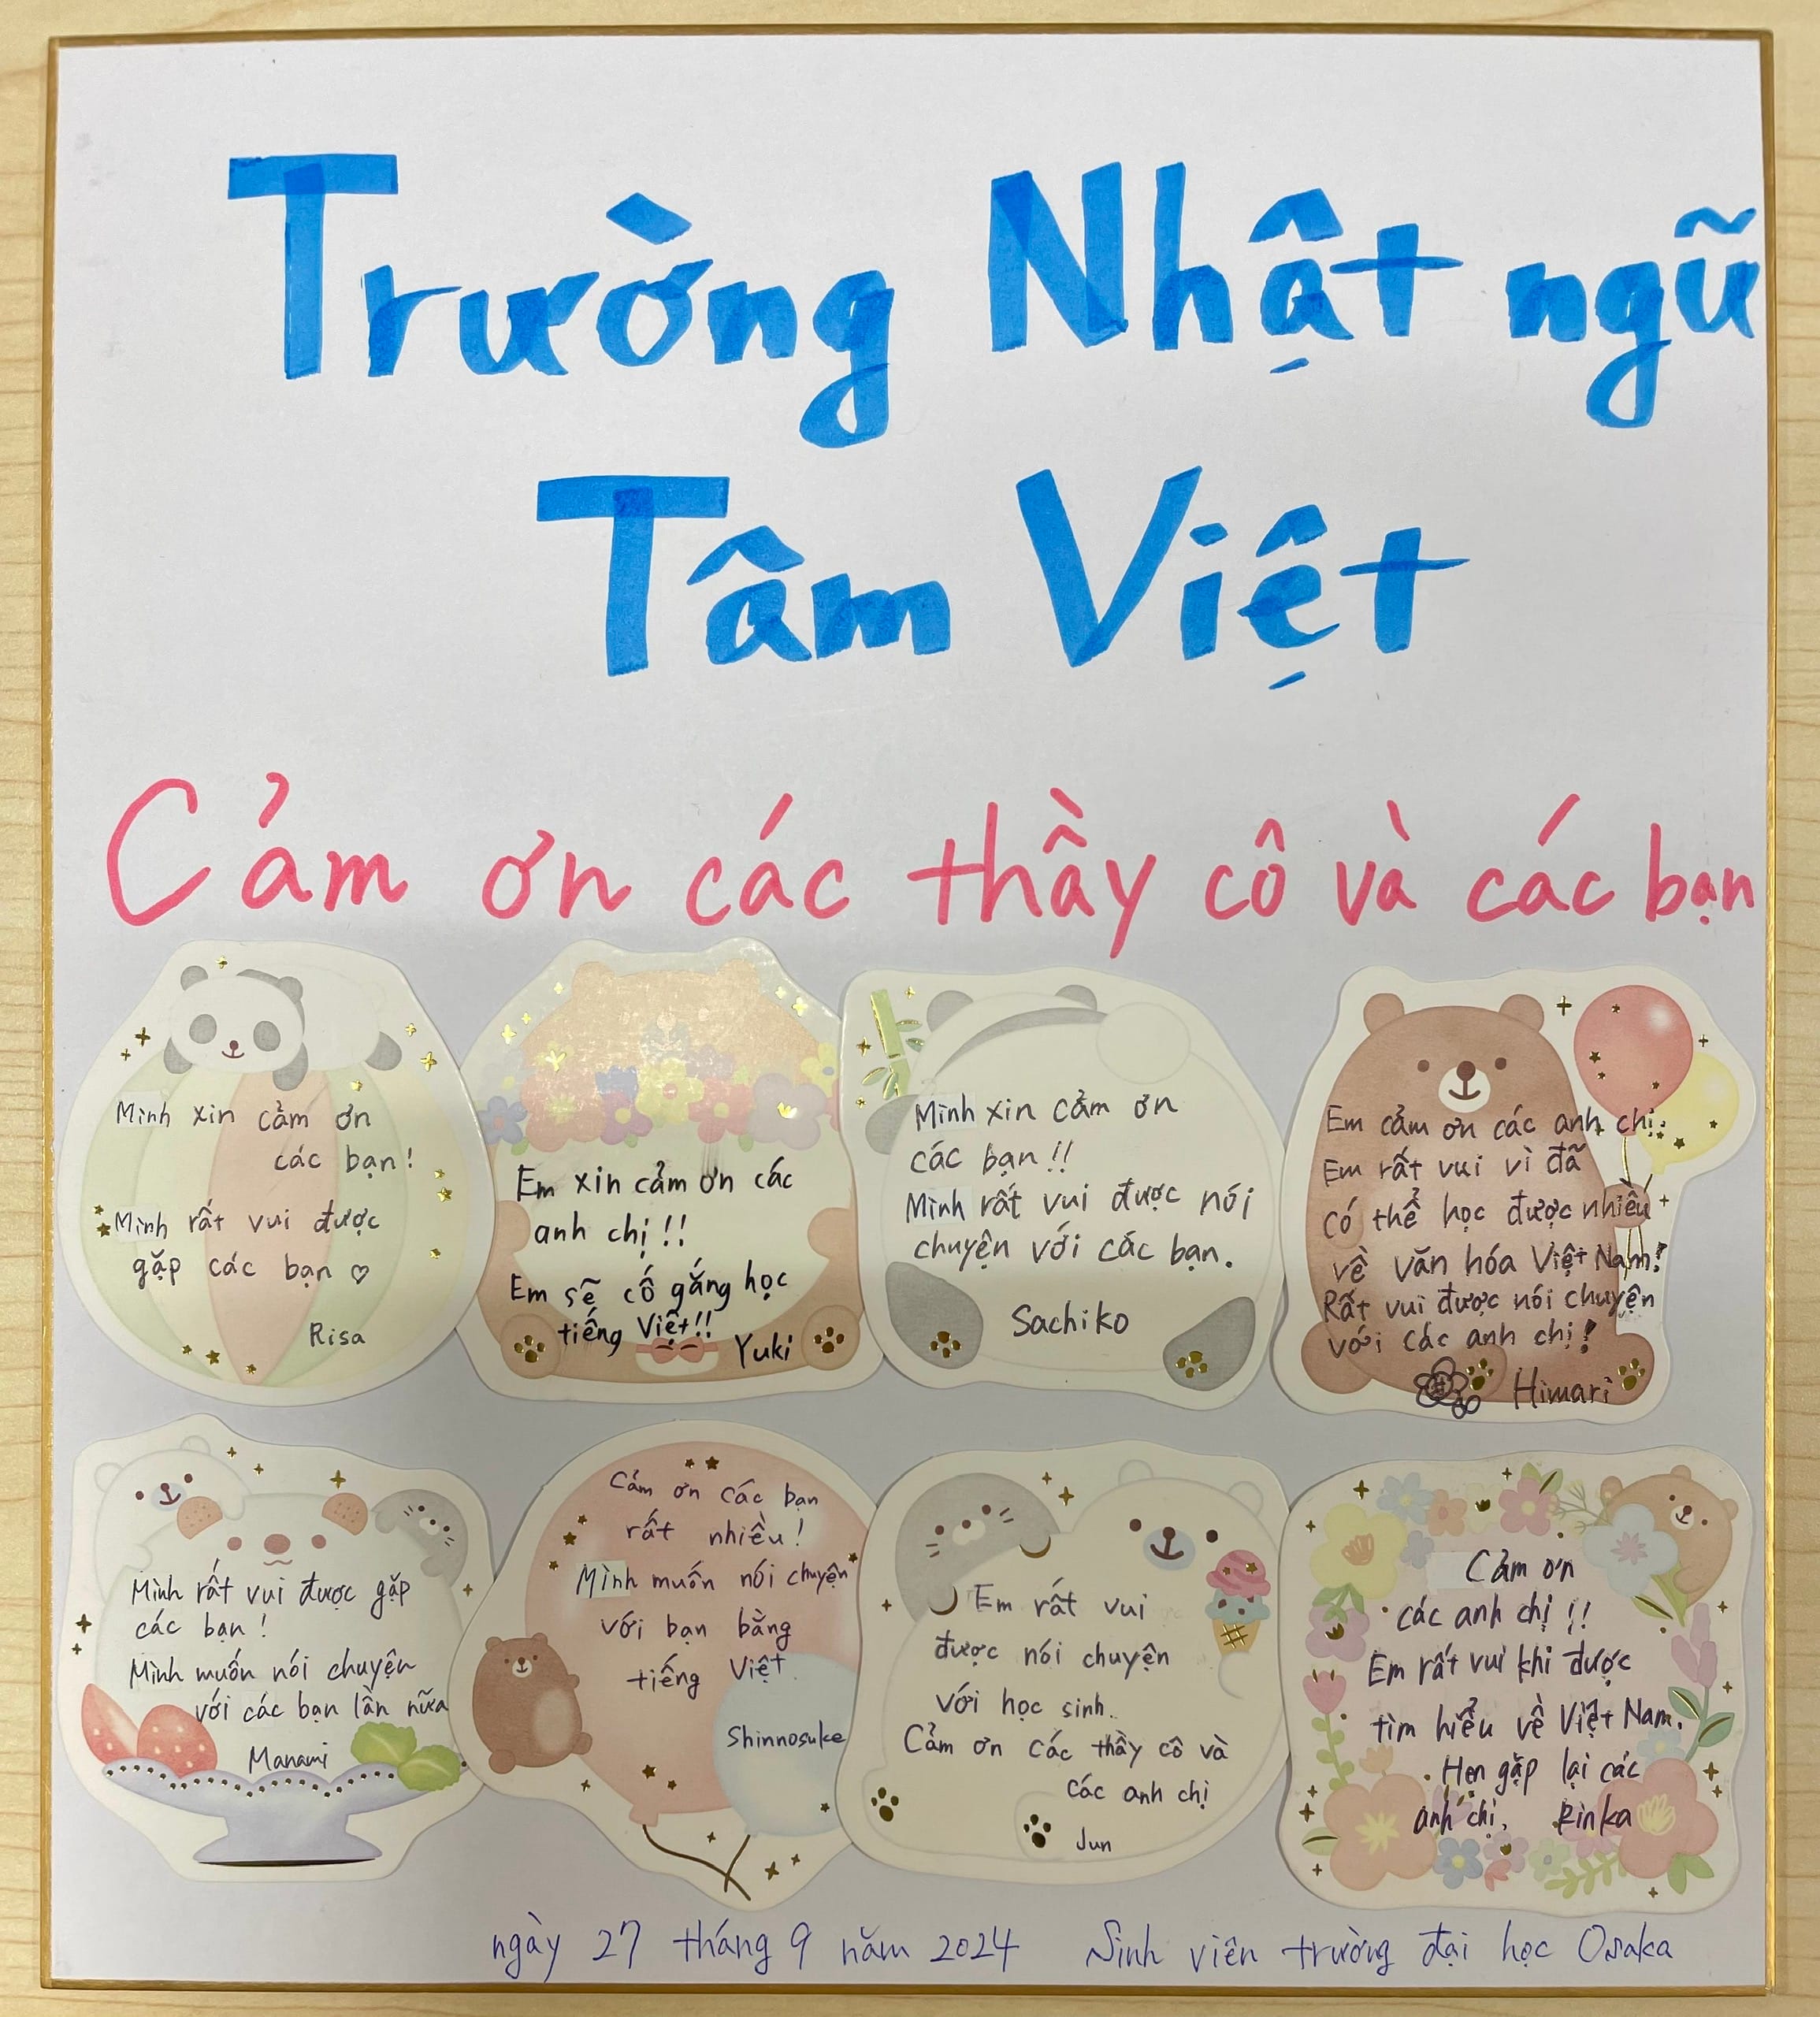 Trường Nhật ngữ
Tâm Việt
Cảm ơn các thầy cô và các bạn
Mình xin cảm ơn
các bạn!
Mình rất vui được
gặp các bạn ♡
Risa
Em xin cảm ơn các
anh chị!!
Em sẽ cố gắng học
tiếng Việt!!
Yuki
Mình xin cảm ơn
các bạn!!
Mình rất vui được nói
chuyện với các bạn.
Sachiko
Em cảm ơn các anh chị.
Em rất vui vì đã
có thể học được nhiều
về văn hóa Việt Nam!
Rất vui được nói chuyện
với các anh chị!
Himari
Mình rất vui được gặp
các bạn!
Mình muốn nói chuyện
với các bạn lần nữa
Manami
Cảm ơn các bạn
rất nhiều!
Mình muốn nói chuyện
với bạn bằng
tiếng Việt.
Shinnosuke
Em rất vui
được nói chuyện
với học sinh.
Cảm ơn các thầy cô và
các anh chị
Jun
Cảm ơn
các anh chị!!
Em rất vui khi được
tìm hiểu về Việt Nam.
Hẹn gặp lại các
anh chị. Rinka
ngày 27 tháng 9 năm 2024 Sinh viên trường đại học Osaka